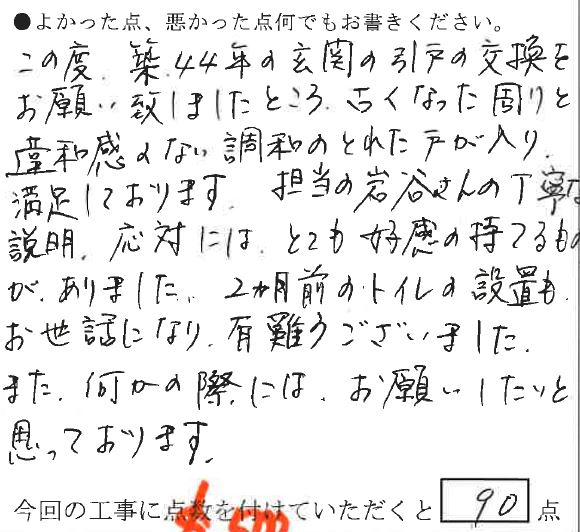 ●よかった点、悪かった点何でもお書きください。
この度、築44年の玄関の引戸の交換を
お願い致しましたところ、古くなった周りと
違和感のない調和のとれた戸が入り、
満足しております。担当の岩谷さんの丁寧な
説明、応対には、とても好感の持てるもの
が、ありました。2か月前のトイレの設置も、
お世話になり、有難うございました。
また、何かの際には、お願いしたいと
思っております。
今回の工事に点数を付けていただくと 90 点